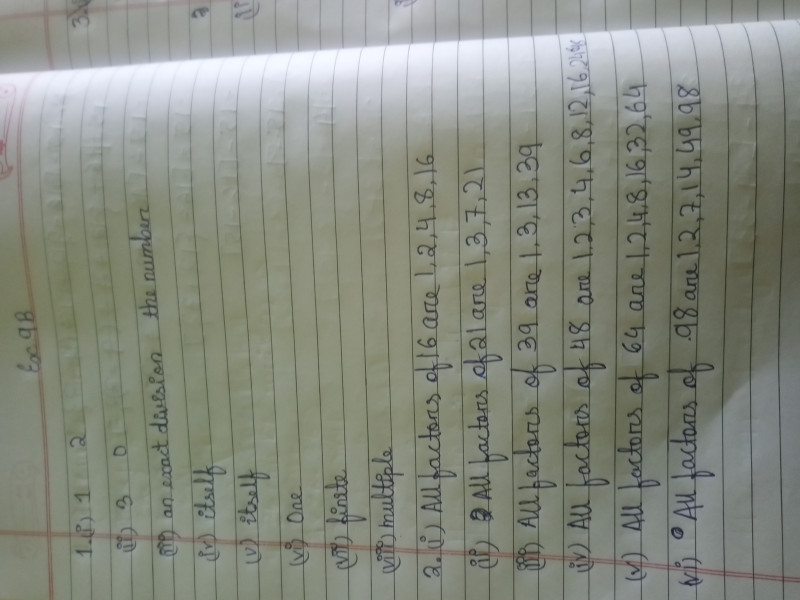 Ex 9B
1.(i) 1 2
(ii) 3 0
(iii) an exact division the number
(iv) itself
(v) itself
(vi) One
(vii) finite
(viii) multiple
2.(i) All factors of 16 are 1,2,4,8,16
(ii) All factors of 21 are 1,3,7,21
(iii) All factors of 39 are 1,3,13,39
(iv) All factors of 48 are 1,2,3,4,6,8,12,16,24,48
(v) All factors of 64 are 1,2,4,8,16,32,64
(vi) All factors of 98 are 1,2,7,14,49,98